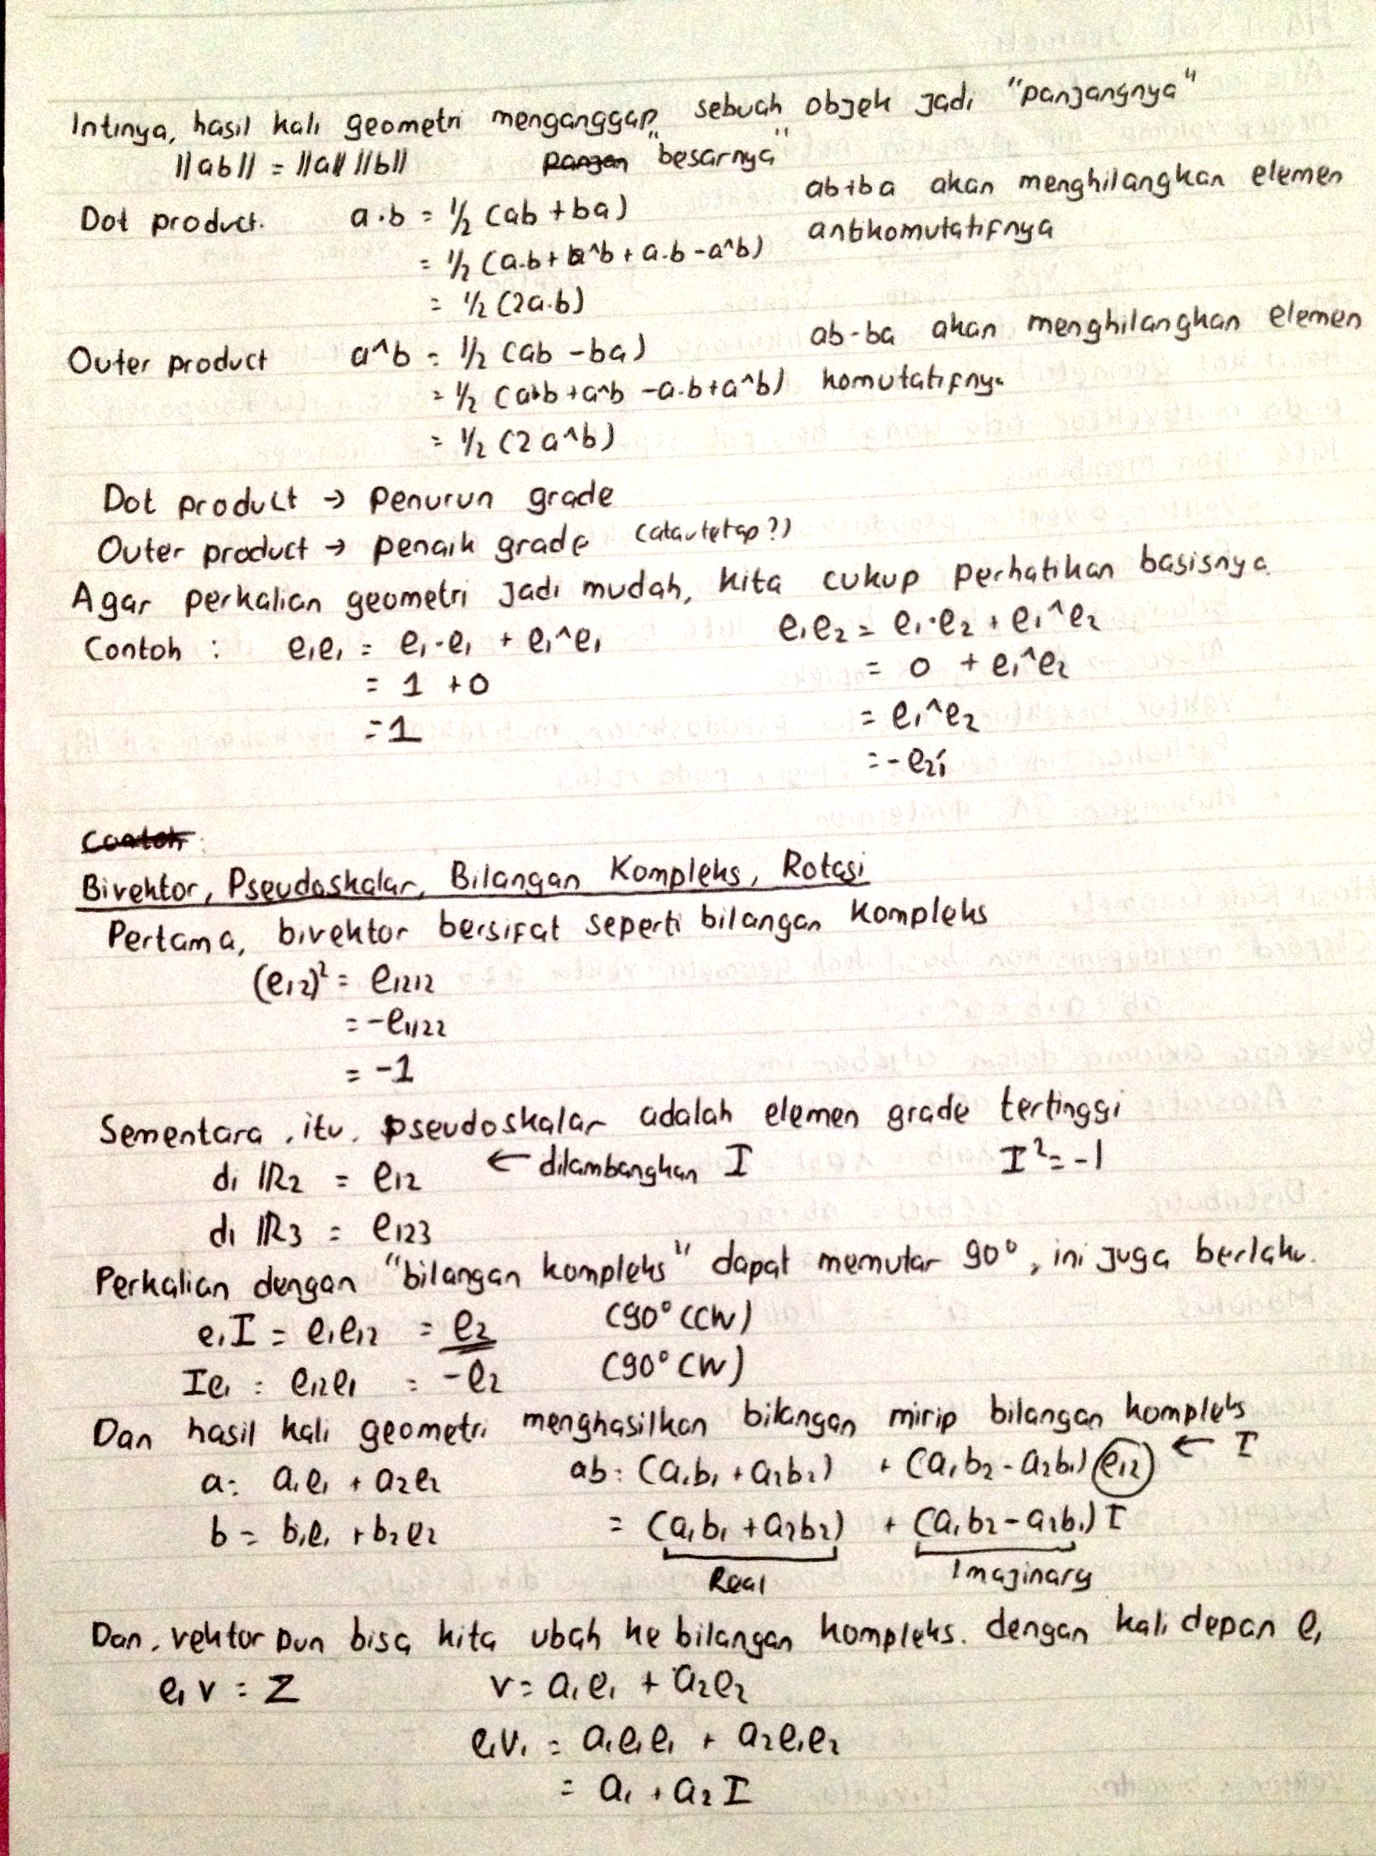 Intinya, hasil kali geometri menganggap sebuah objek jadi "panjangnya"
||ab|| = ||a|| ||b|| "besarnya"
Dot product. a·b = ½ (ab + ba) ab+ba akan menghilangkan elemen
= ½ (a·b + a^b + a·b - a^b) antikomutatifnya
= ½ (2a·b)
Outer product a^b = ½ (ab - ba) ab-ba akan menghilangkan elemen
= ½ (a·b + a^b - a·b + a^b) komutatifnya
= ½ (2 a^b)
Dot product → penurun grade
Outer product → penaik grade (atau tetap?)
Agar perkalian geometri jadi mudah, kita cukup perhatikan basisnya.
Contoh : e₁e₁ = e₁·e₁ + e₁^e₁ e₁e₂ = e₁·e₂ + e₁^e₂
= 1 + 0 = 0 + e₁^e₂
= 1 = e₁^e₂
= -e₂₁
Contoh:
Bivektor, Pseudoskalar, Bilangan Kompleks, Rotasi
Pertama, bivektor bersifat seperti bilangan kompleks
(e₁₂)² = e₁₂₁₂
= -e₁₁₂₂
= -1
Sementara, itu, pseudoskalar adalah elemen grade tertinggi
di ℝ₂ = e₁₂ ← dilambangkan I I² = -1
di ℝ₃ = e₁₂₃
Perkalian dengan "bilangan kompleks" dapat memutar 90°, ini juga berlaku.
e₁I = e₁e₁₂ = e₂ (90° CCW)
Ie₁ = e₁₂e₁ = -e₂ (90° CW)
Dan hasil kali geometri menghasilkan bilangan mirip bilangan kompleks
a = a₁e₁ + a₂e₂ ab = (a₁b₁ + a₂b₂) + (a₁b₂ - a₂b₁) e₁₂ ← I
b = b₁e₁ + b₂e₂ = (a₁b₁ + a₂b₂) + (a₁b₂ - a₂b₁) I
Real Imaginary
Dan, vektor pun bisa kita ubah ke bilangan kompleks. dengan kali depan e₁
e₁v = Z v = a₁e₁ + a₂e₂
e₁v₁ = a₁e₁e₁ + a₂e₁e₂
= a₁ + a₂I